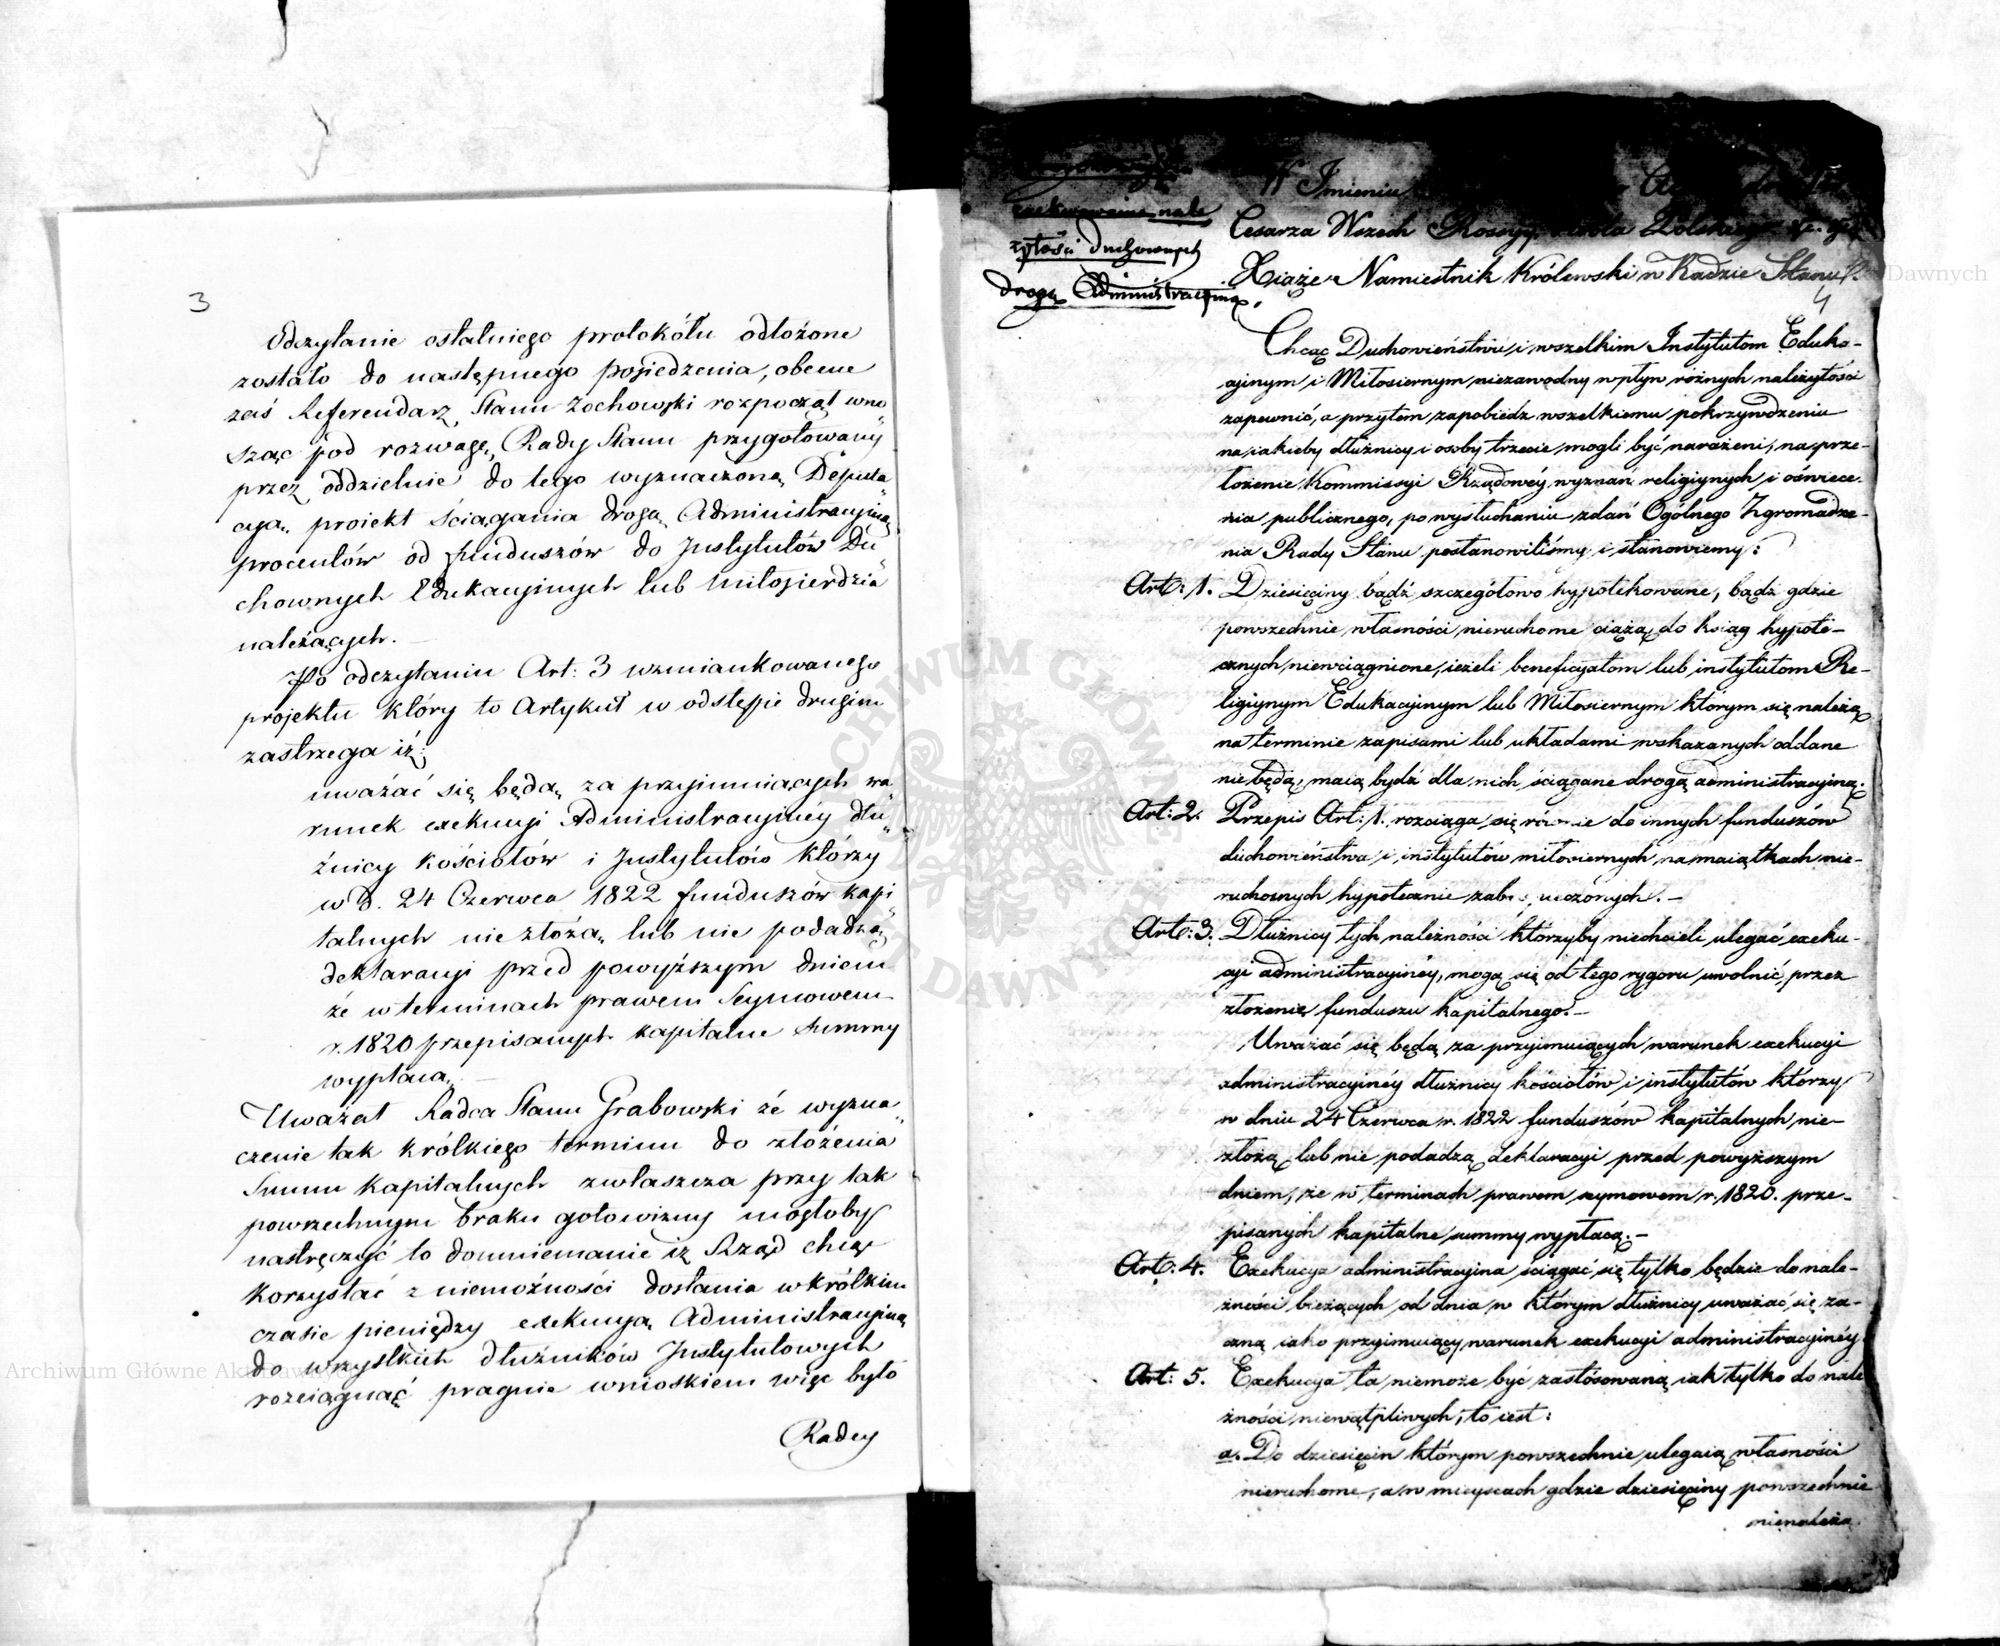 3
Odczytanie ostatniego protokółu odłożone
zostało do następnego posiedzenia, obecnie
zaś Referendarz Stanu Zochowski rozpoczął wno„
sząc pod rozwagę Rady Stanu przygotowany
przez oddzielnie do tego wyznaczoną Deputa„
cyą projekt ściągania drogą Administracyiną
procentów od funduszów do Instytutów Du„
chownych Edukacyinych lub Miłosierdzia
należących. —
Po odczytaniu Art: 3 wzmiankowanego
projektu który to Artykuł w odstępie drugim
zastrzega iż:
uważać się będą za przyimuiących wa„
runek exekucyi Administracyinéy dłu„
żnicy kościołów i Instytutów którzy
w d. 24 Czerwca 1822 funduszów kapi„
talnych nie złożą lub nie podadzą
deklaracyi przed powyższym dniem
że w terminach prawem Seymowem
r. 1820 przepisanych kapitalne Summy
wypłacą. —
Uważał Radca Stanu Grabowski że wyzna„
czenie tak krótkiego terminu do złożenia
Summ kapitalnych zwłaszcza przy tak
powszechnym braku gotowizny mogłoby
nastręczyć to domniemanie iż Rząd chcąc
korzystać z niemożności dostania w krótkim
czasie pieniędzy exekucyą Administracyiną
do wszystkich dłużników Instytutowych
rozciągnąć pragnie wnioskiem więc było
Radcy
exekwowania nale
żytości duchownych
drogą Administracyiną.
W Imieniu
Cesarza Wszech Rossyy Króla Polskiego &c. &c.
Xiąże Namiestnik Królewski w Radzie Stanu
4
Chcąc Duchowieństwu i wszelkim Instytutom Eduka-
cyinym i Miłosiernym niezawodny wpływ różnych należytości
zapewnić, a przytem zapobiedz wszelkiemu pokrzywdzeniu
na iakieby dłużnicy i osoby trzecie mogli być narażeni, na prze-
łożenie Kommissyi Rządowéy wyznań religiynych i oświece-
nia publicznego, po wysłuchaniu zdań Ogólnego Zgromadze-
nia Rady Stanu postanowiliśmy i stanowiemy:
Art: 1. Dziesięciny bądź szczegółowo hypotekowane, bądź gdzie
powszechnie własności nieruchome ciążą do ksiąg hypote-
cznych niewciągnione, ieżeli beneficyatom lub instytutom Re-
ligiynym Edukacyinym lub Miłosiernym którym się należą
na terminie zapisami lub układami wskazanych oddane
nie będą, maią bydź dla nich ściągane drogą administracyiną.
Art: 2. Przepis Art: 1. rozciąga się równie do innych funduszów
duchowieństwa i instytutów miłosiernych na maiątkach nie-
ruchomych hypotecznie zabezpieczonych. —
Art: 3. Dłużnicy tych należności którzyby niechcieli ulegać exeku-
cyi administracyinéy, mogą się od tego rygoru uwolnić przez
złożenie funduszu kapitalnego. —
Uważać się będą za przyimuiących warunek exekucyi
administracyinéy dłużnicy kościołów i instytutów którzy
w dniu 24 Czerwca r. 1822 funduszów kapitalnych nie-
złożą lub nie podadzą deklaracyi przed powyższym
dniem, że w terminach prawem seymowem r. 1820. prze-
pisanych kapitalne summy wypłacą. —
Art: 4. Exekucya administracyina ściągać się tylko będzie do nale-
żności bieżących od dnia w którym dłużnicy uważać się za-
czną iako przyimuiący warunek exekucyi administracyinéy.
Art: 5. Exekucya ta niemoże być zastósowaną iak tylko do nale
żności niewątpliwych, to iest:
a. Do dziesięcin którym powszechnie ulegaią własności
nieruchome, a w mieyscach gdzie dziesięciny powszechnie
nienależą
Archiwum Główne Akt Dawnych